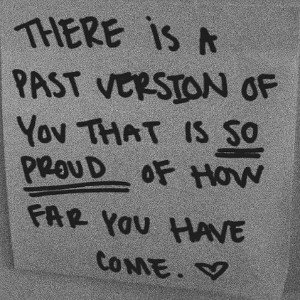 THERE IS A
PAST VERSION OF
YOU THAT IS SO
PROUD OF HOW
FAR YOU HAVE
COME. ♡